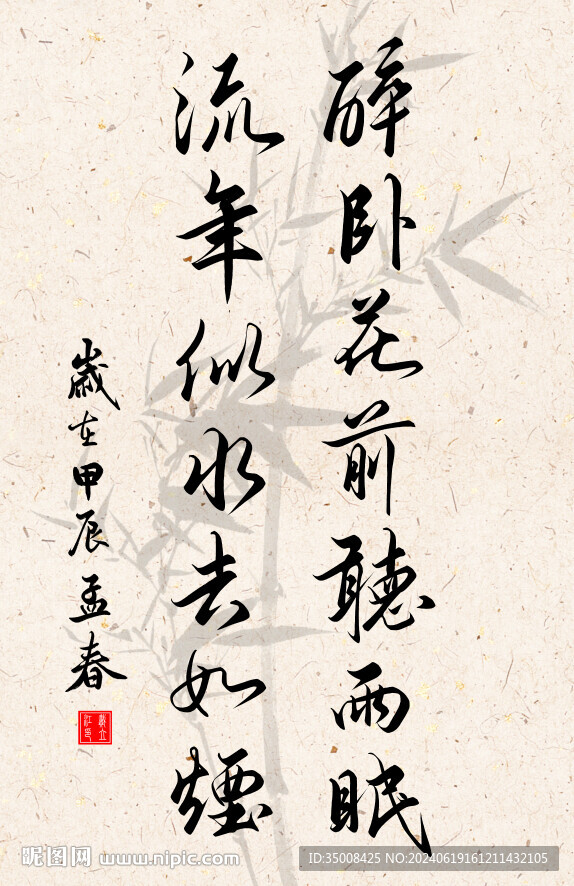 醉卧花前聽雨眠
流年似水去如煙
歲在甲辰孟春
昵图网 www.nipic.com
ID:35008425 NO:20240619161211432105